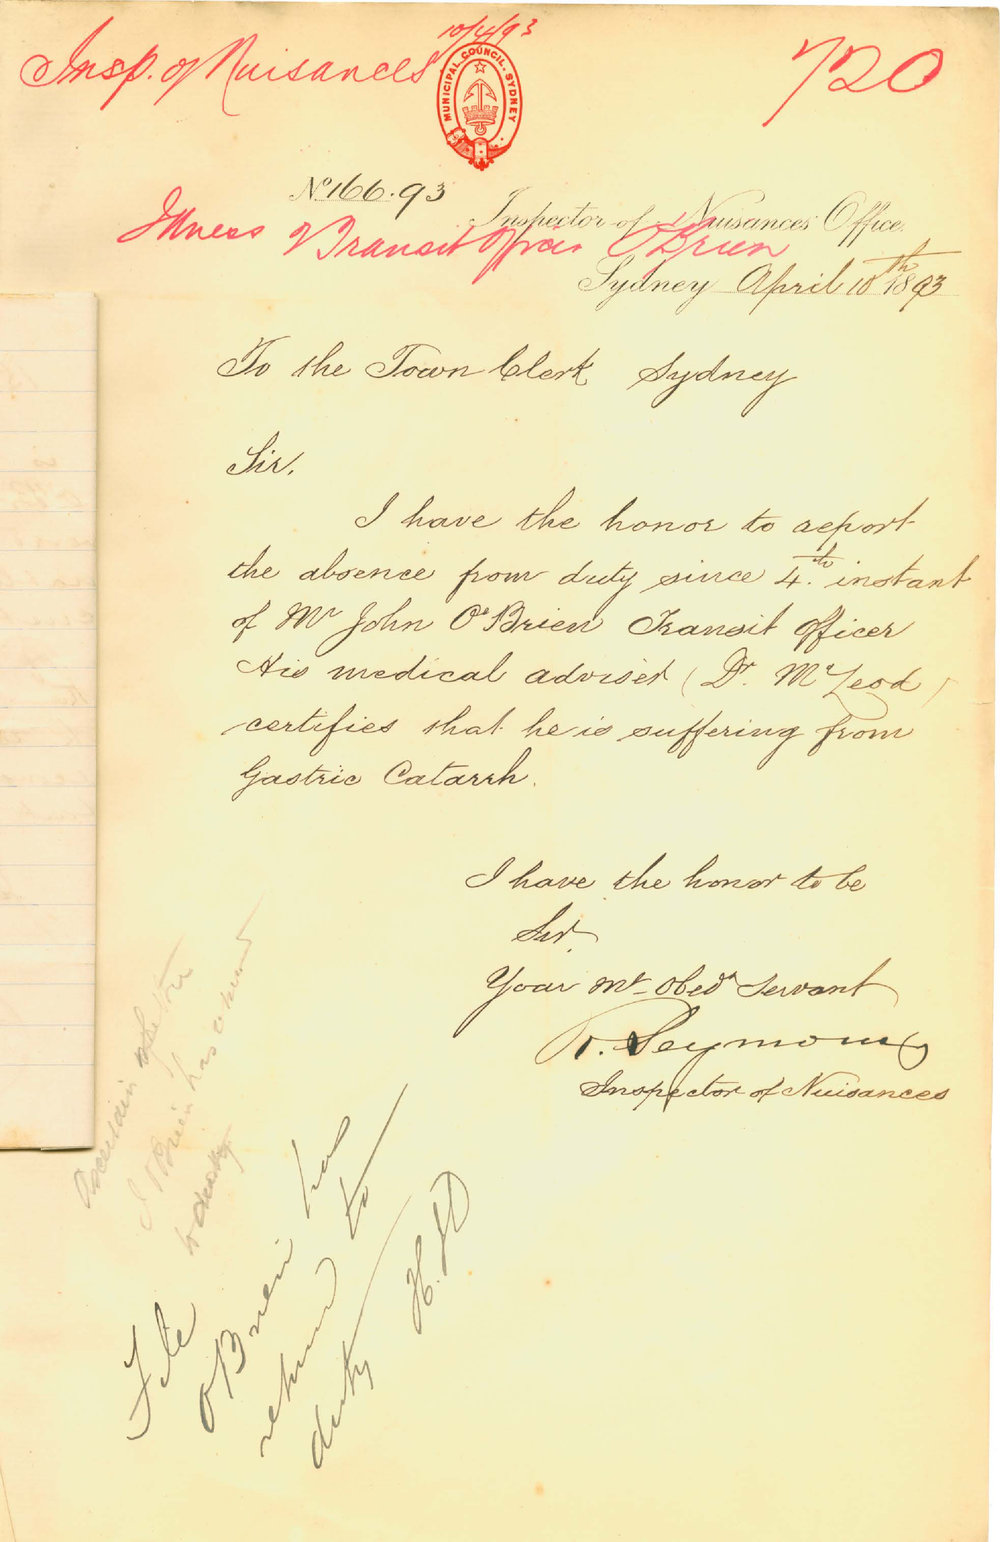 10/4/93
Insp. of Nuisances
720
MUNICIPAL COUNCIL. SYDNEY
No 166.93
Inspector of Nuisances Office.
Illness of Transit Officer O'Brien
Sydney April 10th 1893
To the Town Clerk Sydney
Sir,
I have the honor to report
the absence from duty since 4th instant
of Mr John O'Brien Transit Officer
His medical adviser (Dr. McLeod)
certifies that he is suffering from
Gastric Catarrh.
I have the honor to be
Sir
Your Mt Obedt Servant
R. Seymour
Inspector of Nuisances
Ascertain whether
J O'Brien has returned
to duty
File
O'Brien has
returned to
duty